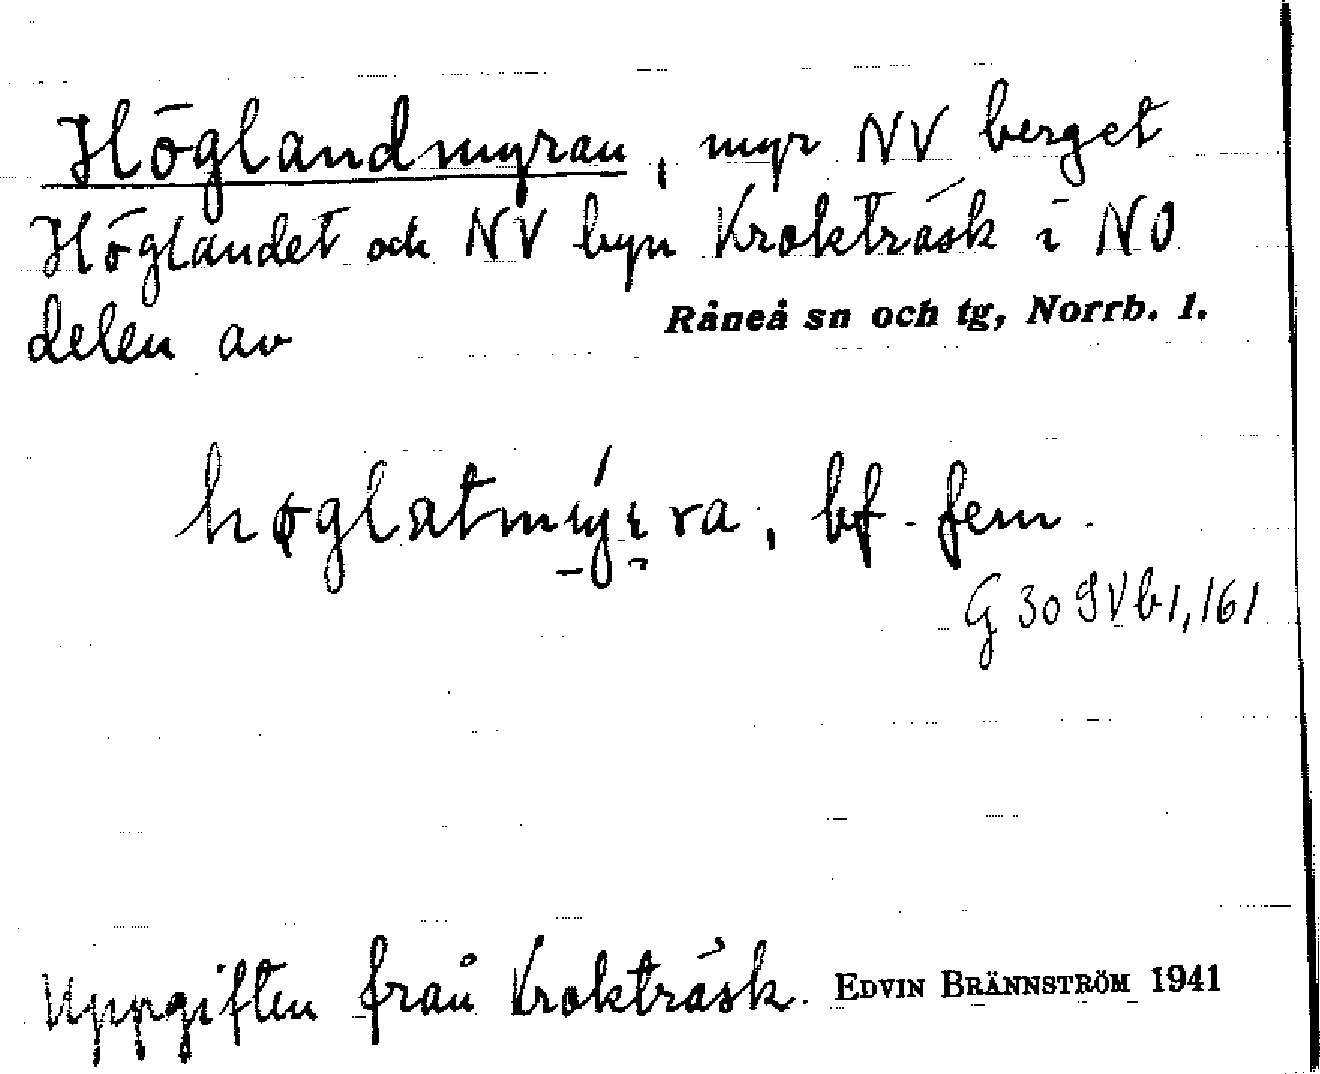 Höglandmyran, myr NV berget
Höglandet och NV byn Kroktrāsk i NO
delen av Råneå sn och tg, Norrb. l.
høglatmýɩra, bf. fem.
G 30 IV b 1, 161
Uppgiften från Kroktråsk. EDVIN BRÄNNSTRÖM 1941